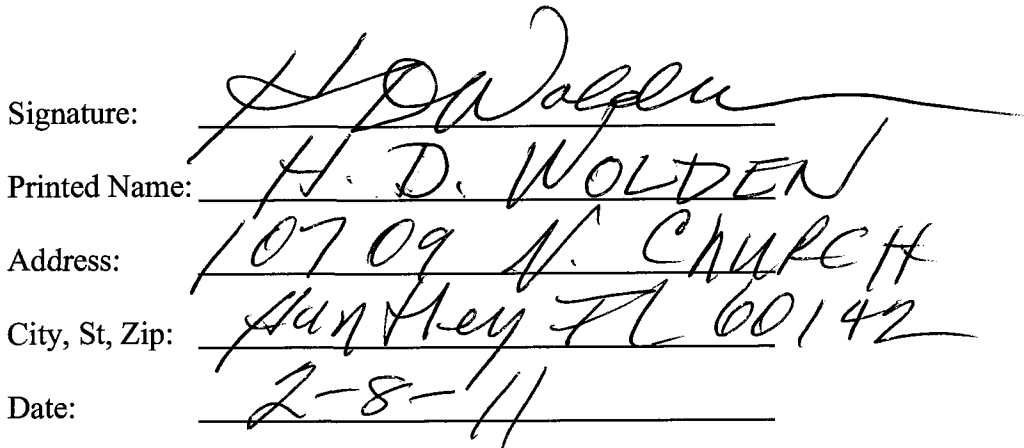 Signature: H D Wolden
Printed Name: H. D. WOLDEN
Address: 10709 N. CHURCH
City, St, Zip: Huntley IL 60142
Date: 2-8-11